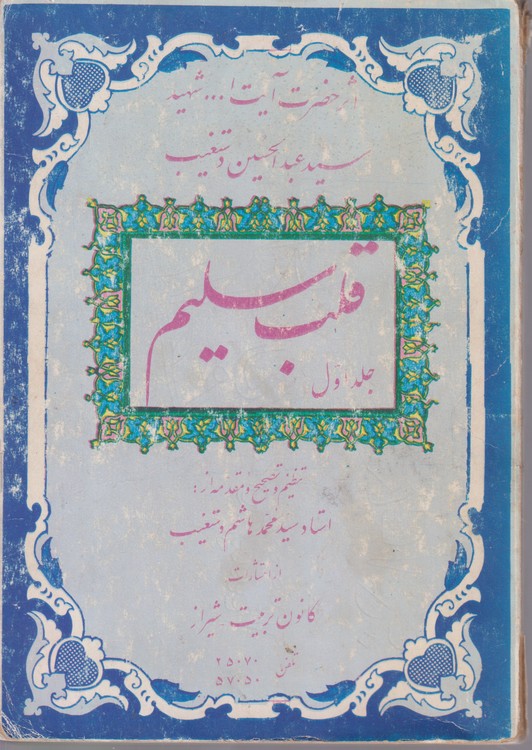 اثر حضرت آیت ا... شهید
سید عبدالحسین دستغیب
قلب سلیم
جلد اول
تنظیم و تصحیح و مقدمه از:
استاد سید محمد هاشم دستغیب
از انتشارات
کانون تربیت شیراز
تلفن ۲۵۰۷۰
۵۷۰۵۰